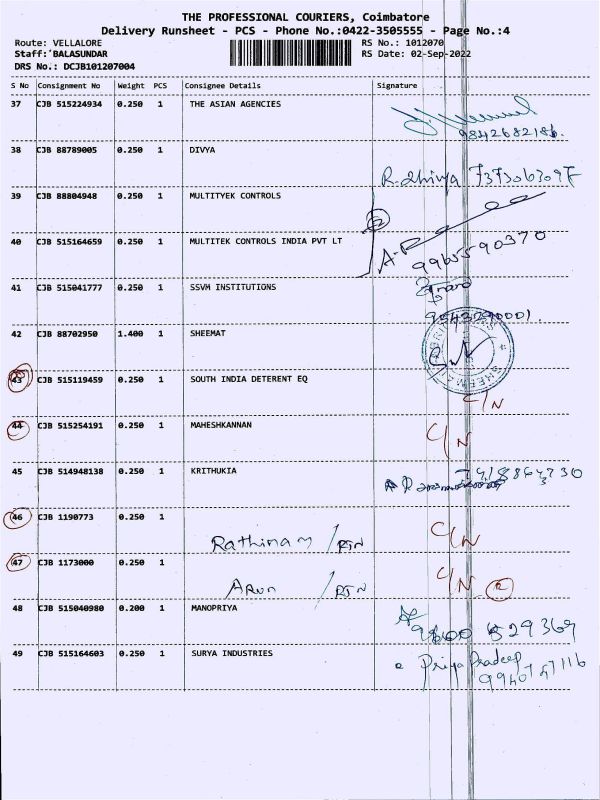 THE PROFESSIONAL COURIERS, Coimbatore
Delivery Runsheet - PCS - Phone No.:0422-3505555 - Page No.:4
Route: VELLALORE RS No.: 1012070
Staff: BALASUNDAR RS Date: 02-Sep-2022
DRS No.: DCJB101207004
S No Consignment No Weight PCS Consignee Details Signature
37 CJB 515224934 0.250 1 THE ASIAN AGENCIES
9842682186.
38 CJB 88789005 0.250 1 DIVYA
39 CJB 88804948 0.250 1 MULTITYEK CONTROLS
40 CJB 515164659 0.250 1 MULTITEK CONTROLS INDIA PVT LT
9965590370
41 CJB 515041777 0.250 1 SSVM INSTITUTIONS
42 CJB 88702950 1.400 1 SHEEMAT
43 CJB 515119459 0.250 1 SOUTH INDIA DETERENT EQ
C/N
44 CJB 515254191 0.250 1 MAHESHKANNAN C/N
45 CJB 514948138 0.250 1 KRITHUKIA
46 CJB 1190773 0.250 1
Rathinam / RTN C/N
47 CJB 1173000 0.250 1
Arun / RTN C/N 2
48 CJB 515040980 0.200 1 MANOPRIYA
49 CJB 515164603 0.250 1 SURYA INDUSTRIES Priya Pradeep